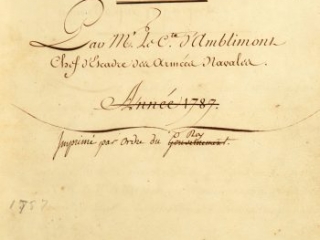 Par Mr. Le Cte. d'Amblimont
Chef d'Escadre des Armées Navales.
Année 1787.
Imprimé par Ordre du Gouvernement.
Roy
1757